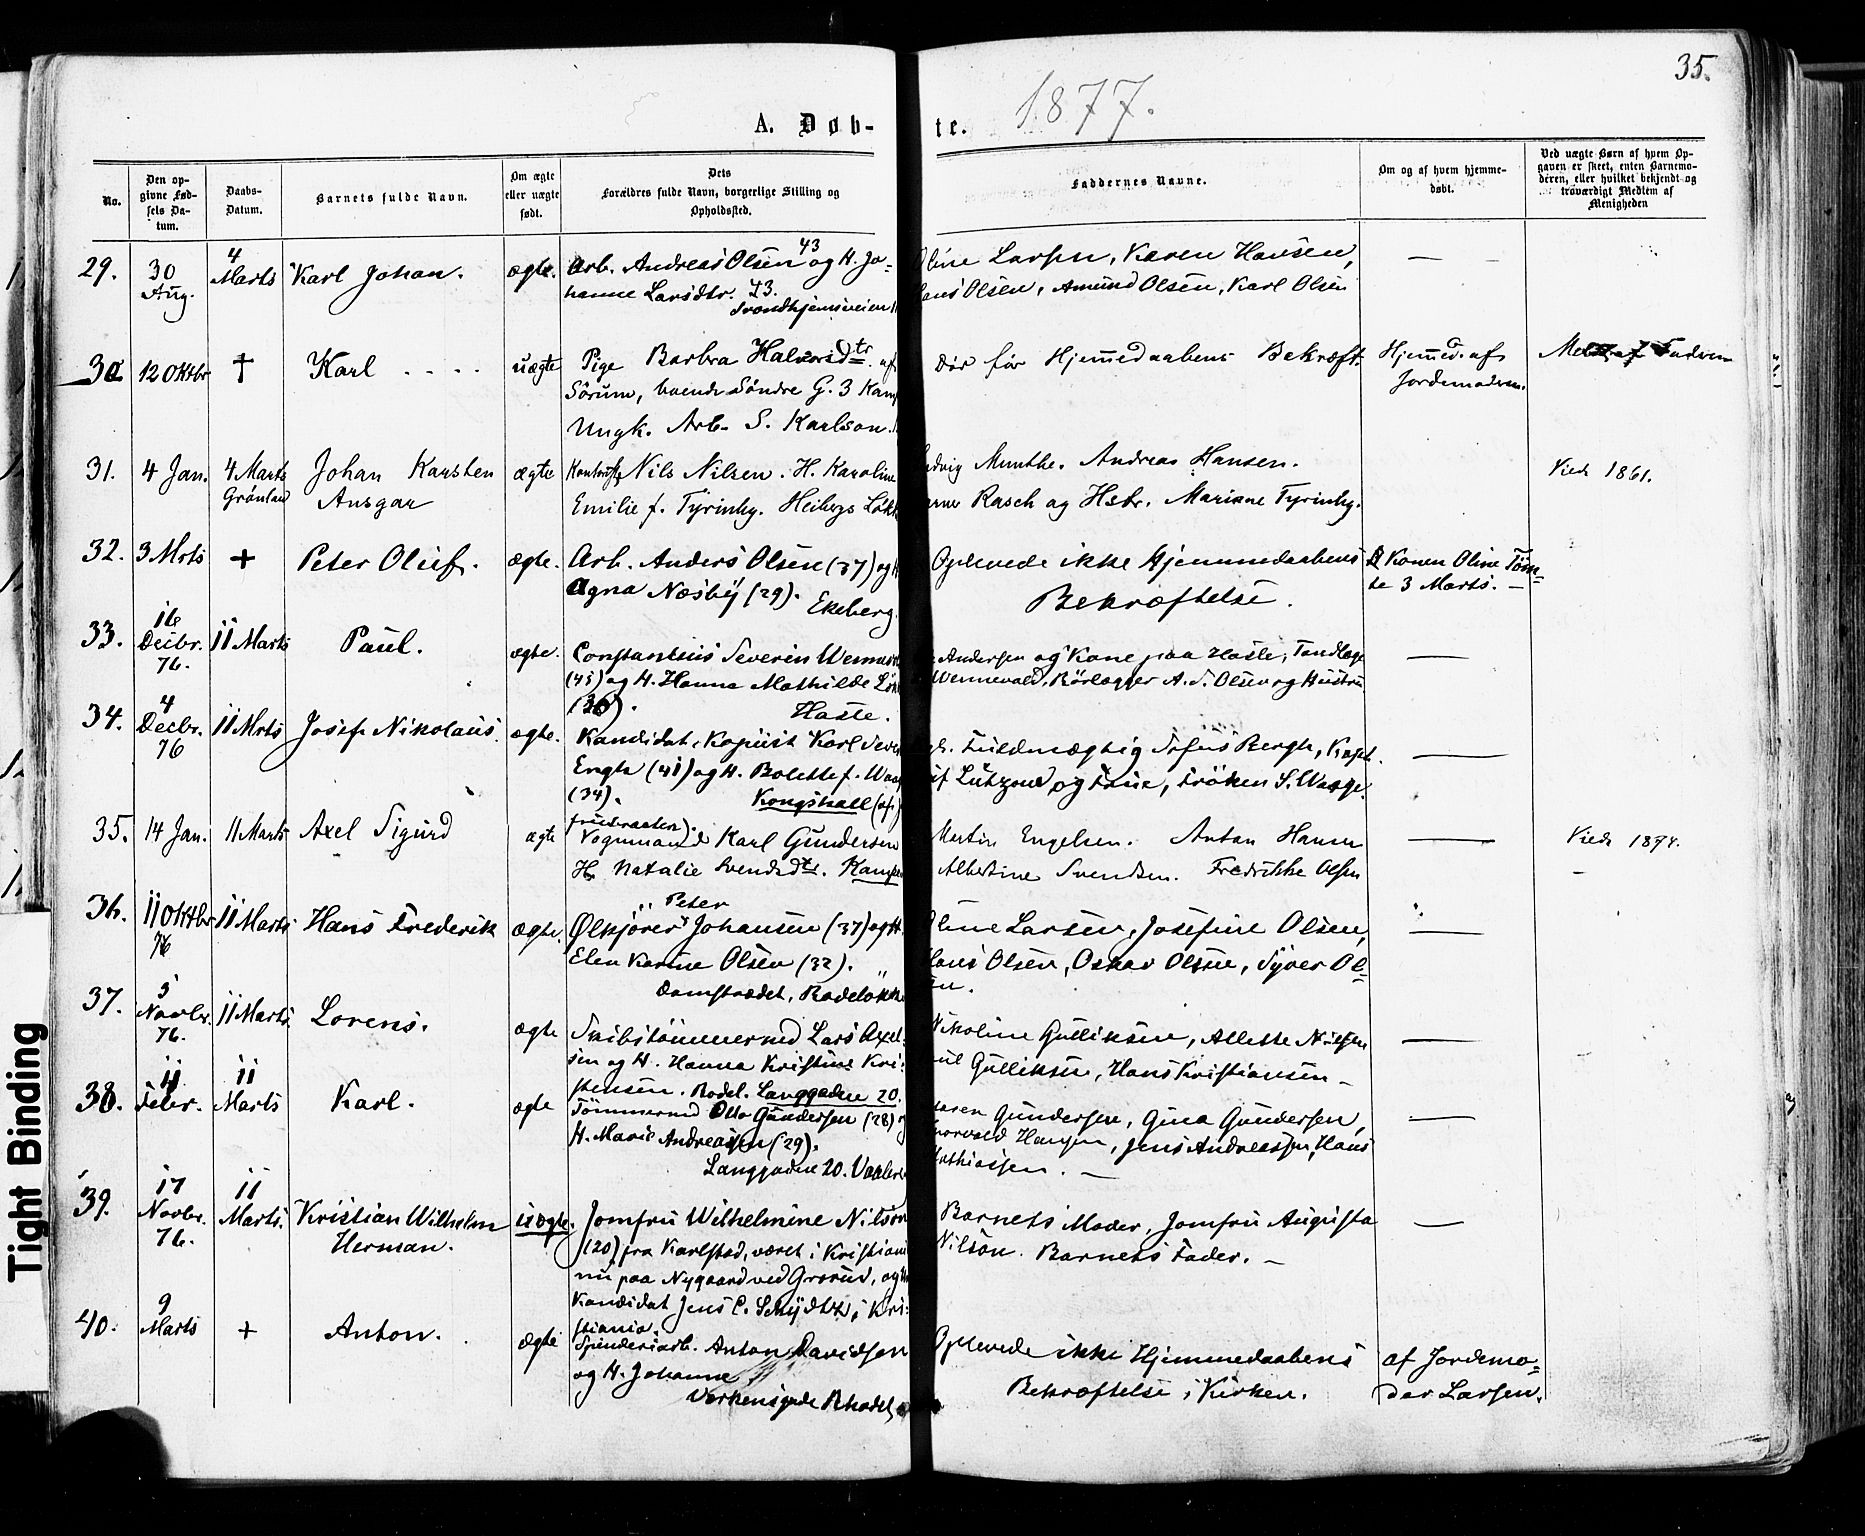 35.
1877.
A. Døb-
te.
No.
Den op-
givne Fød-
sels Da-
tum.
Daabs-
Datum.
Barnets fulde Navn.
Om ægte
eller uægte
født.
Dets
Forældres fulde Navn, borgerlige Stilling og
Opholdssted.
Faddernes Navne.
Om og af hvem hjemme-
døbt.
Ved uægte Børn af hvem Op-
gaven er skeet, enten Barnemo-
deren, eller hvilket bekjendt og
troværdigt Medlem af
Menigheden
29.
30
Aug.
4
Marts
Karl Johan.
ægte.
Arb. Andreas Olsen 43 og H. Jo-
hanne Larsdtr. 43.
Trondhjemsveien
Oline Larsen, Karen Hansen,
Hans Olsen, Amund Olsen, Karl Olsen
30
12 Oktbr
†
Karl
uægte
Pige Barbra Halvorsdtr. af
Sörum, boende Söndre G. 3 Kam
Ungk. Arb. S. Karlson.
Dör før Hjemmedaabens Bekræft.
Hjemmed. af
Jordemoderen.
31.
4 Jan.
4 Marts
Grönland
Johan Karsten
Ansgar
ægte
Nils Nilsen. H. Karoline
Emilie f. Tyrinhy. Heibergs Løkk
Munthe. Andreas Hansen.
Rasch og Hstr. Mariane Tyrinhy.
Viede 1861.
32.
3 Mrts
+
Peter Oluf.
ægte.
Arb. Anders Olsen (37) og H
Agna Næsby (29).
Ekeberg.
Oplevede ikke Hjemmedaabens
Bekræftelse.
Konen Oline Töm-
te 3 Marts.
33.
16
Decbr.
76.
11 Marts
Paul.
ægte.
Constantius Severin Wennev
(45) og H. Hanna Mathilde Løk
(36).
Hasle.
Andersen og Kone paa Hasle, Tandlæge
Wennevald, Rörlægger A. S. Olsen og Hustru
34.
4
Decbr.
76
11 Mrts
Josef Nikolaus.
ægte.
Kandidat, Kopiist Karl Seve
Engh (41) og H. Bolette f. Waag
(34).
Kongshall (af
Fuldmægtig Sofus Bergh, Kapt.
Lützow og Frue, Fröken S. Waage.
35.
14 Jan.
11 Marts
Axel Sigurd
ægte
Vognmand Karl Gundersen
H. Natalie Svendsdtr. Kampen
Martin Engelsen. Anton Hansen
Albertine Svendsen. Fredrikke Olsen
Viede 1874.
36.
11 Oktbr
76
11 Marts
Hans Frederik
ægte.
Peter
Ølkjörer Johansen (37) og H.
Elen Karine Olsen (32).
Damstrædet, Rodeløkke
Oline Larsen, Josefine Olsen,
Hans Olsen, Oskar Olsen, Syver Ol-
sen.
37.
5
Novbr.
76.
11 Marts
Lorens.
ægte
Skibstömmermd Lars Axel-
sen og H. Hanna Kristine Kri-
stensen. Rodel. Langgaden 20.
Nikoline Gulliksen, Allette Nilsen
Gulliksen, Hans Kristiansen
38.
11
Febr.
11
Marts
Karl.
ægte
Tömmermd Otto Gundersen (28) og
H. Marie Andreassen (29).
Langgaden 20. Vaaleren
Karen Gundersen, Gina Gundersen,
Thorvald Hansen, Jens Andreassen, Hans
Mathiassen.
39.
17
Novbr.
76.
11
Marts.
Kristian Wilhelm
Herman.
uægte.
Jomfru Wilhelmine Nilson
(20) fra Karlstad, været i Kristiani
nu paa Nygaard ved Grorud, og
Kandidat Jens C. Schydtz, i Kri-
stiania.
Barnets Moder, Jomfru Augusta
Nilson. Barnets Fader.
40.
9
Marts
+
Anton.
ægte
Spinderiarb. Anton Davidsen
og H. Johanne
Verkensgade Rhodel.
Oplevede ikke Hjemmedaabens
Bekræftelse i Kirken.
af Jordemo-
der Larsen.
Tight Binding